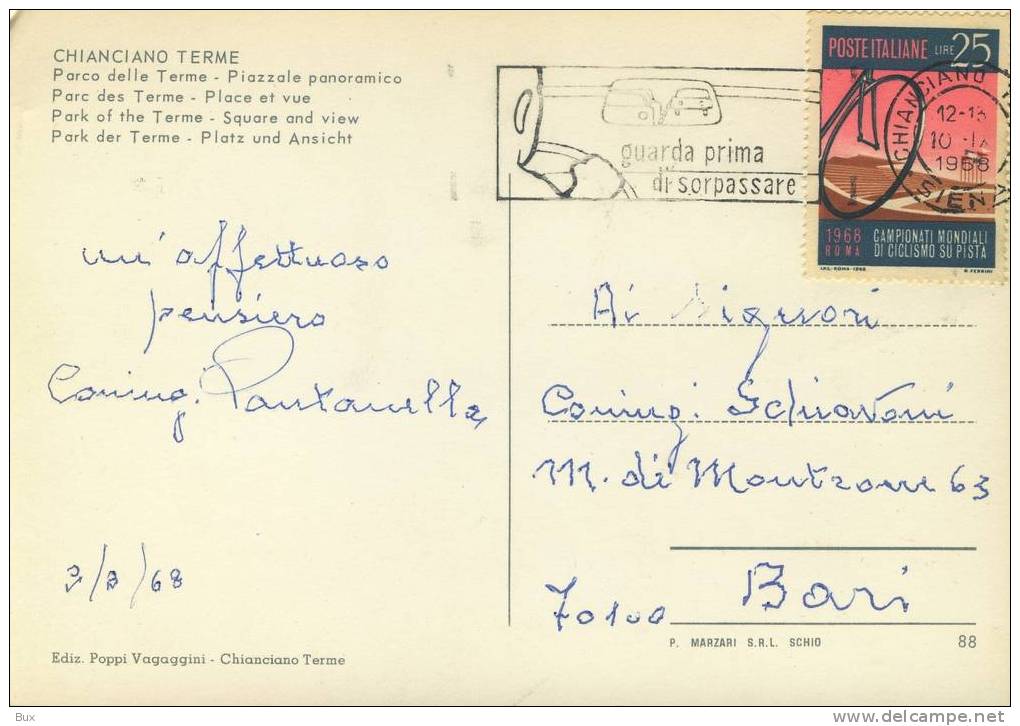 CHIANCIANO TERME
Parco delle Terme - Piazzale panoramico
Parc des Terme - Place et vue
Park of the Terme - Square and view
Park der Terme - Platz und Ansicht
POSTE ITALIANE LIRE 25
CHIANCIANO
12-13
10
1968
SIENA
guarda prima
di sorpassare
1968 CAMPIONATI MONDIALI
ROMA DI CICLISMO SU PISTA
un'affettuoso
pensiero
Coniug. Pantanella
/68
Ai Signori
Coniug. Schiavoni
M. di Montrone 63
70100 Bari
Ediz. Poppi Vagaggini - Chianciano Terme
P. MARZARI S.R.L. SCHIO 88
Bux
http://www.delcampe.net